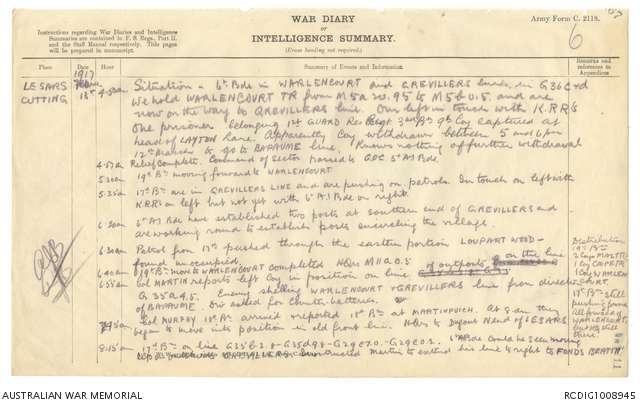 WAR DIARY
or
INTELLIGENCE SUMMARY.
(Erase heading not required.)
Army Form C. 2118.
6
Instructions regarding War Diaries and Intelligence
Summaries are contained in F. S. Regs., Part II.
and the Staff Manual respectively. Title pages
will be prepared in manuscript.
Place
Date
Hour
Summary of Events and Information
Remarks and
references to
Appendices
1917
LE SARS
CUTTING
13th
4.50am
Situation - 6th Bde in WARLENCOURT and GREVILLERS line in G36 C rd
We hold WARLENCOURT TR from M5a 20.95 to M5b 0.5. and are
now on the way to GREVILLERS line. Our left in touch with K.R.R's
One prisoner belonging 1st GUARD Res Regt 3rd Bn 9th Coy captured at
head of LAYTON Lane. Apparently Coy withdrawn between 5 and 6 pm
12th March to go to BAPAUME line. Knows nothing of further withdrawal
4.57am
Relief complete. Command of sector passed to GOC. 5th A.I Bde.
5.20am
19th Bn moving forward to WARLENCOURT
5.35am
17th Bn are in GREVILLERS LINE and are pushing on patrols. In touch on left with
KRR's on left but not yet with 6th A.I Bde on right.
6.30am
6th A.I Bde have established two posts at southern end of GREVILLERS and
are working round to establish posts encircling the village.
6.30am
Patrol from 17th pushed through the eastern portion LOUPART WOOD -
found unoccupied.
6.40am
19th Bn move to WARLENCOURT completed HQrs M11a 0.5
6.55am
Col MARTIN reports left Coy in position on line of outposts on the line
G 35 a 9.5. Enemy shelling WARLENCOURT & GREVILLERS line from direction
of BAPAUME Div asked for counter-batteries.
7.45am
Col MURPHY 18th Bn arrived & reported 18th Bn at MARTINPUICH. At 8 am they
began to move into position in old front line. HQrs to Dugout N end of LE SARS
8.15am
17th Bn on line G35 b 2.8 - G35d 9.8 - G29c 7.0 - G29c 0.2. 6th A Bde could be seen moving
Instructed Martin to extend his line to right to
Distribution
19th Bn
2 Coys
1 Coy
1 Coy WARLEN
COURT.
17th Bn still
pushing forward
WARLENCOURT,
there.
AUSTRALIAN WAR MEMORIAL
RCDIG1008945